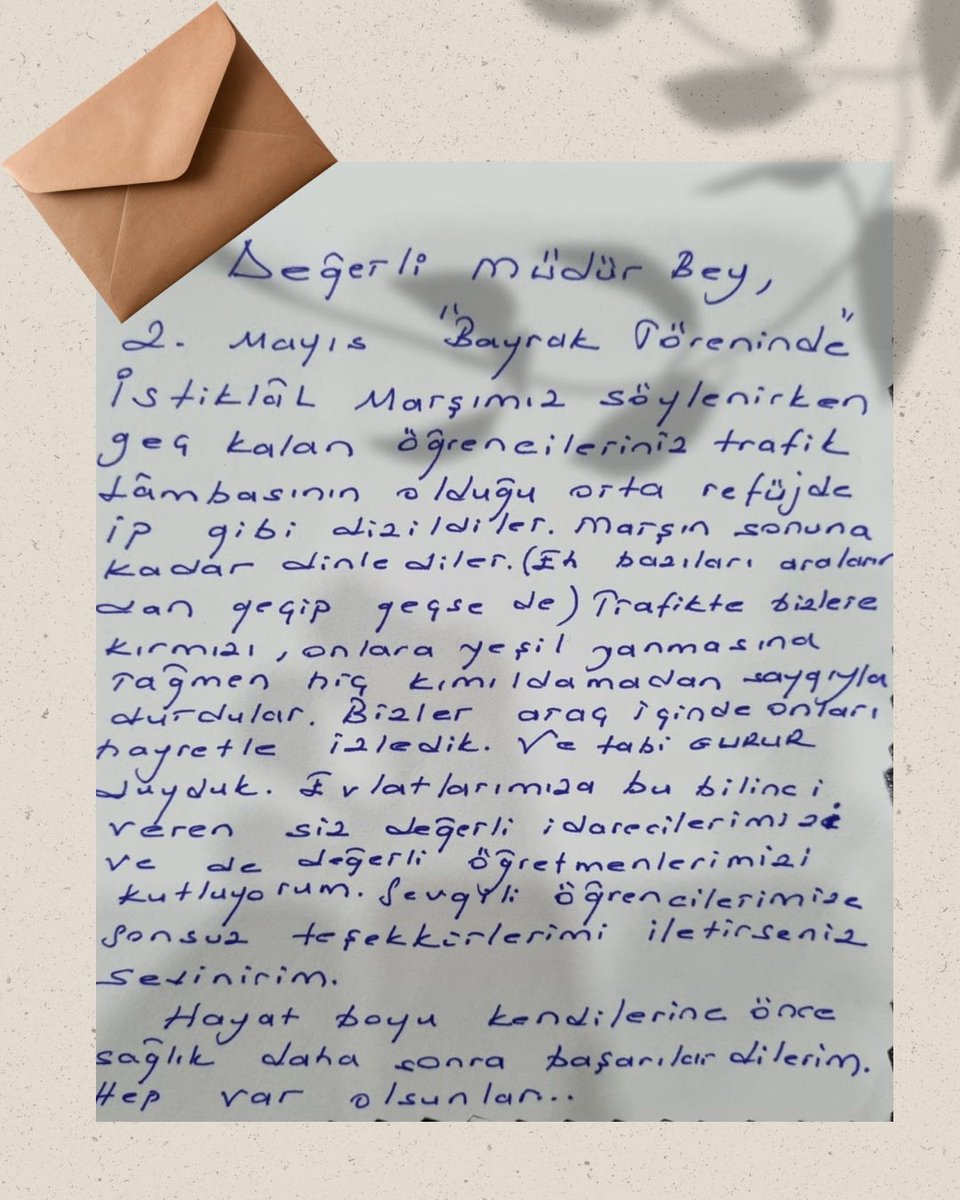 Değerli Müdür Bey,
2. Mayıs "Bayrak Töreninde"
İstiklâl Marşımız söylenirken
geç kalan öğrencileriniz trafik
lâmbasının olduğu orta refüjde
ip gibi dizildiler. Marşın sonuna
kadar dinlediler. (Eh bazıları araların
dan geçip geçse de) Trafikte bizlere
kırmızı, onlara yeşil yanmasına
rağmen hiç kımıldamadan saygıyla
durdular. Bizler araç içinde onları
hayretle izledik. Ve tabi GURUR
duyduk. Evlatlarımıza bu bilinci
veren siz değerli idarecilerimizi
ve de değerli öğretmenlerimizi
kutluyorum. Sevgili öğrencilerimize
sonsuz teşekkürlerimi iletirseniz
sevinirim.
Hayat boyu kendilerine önce
sağlık daha sonra başarılar dilerim.
Hep var olsunlar..